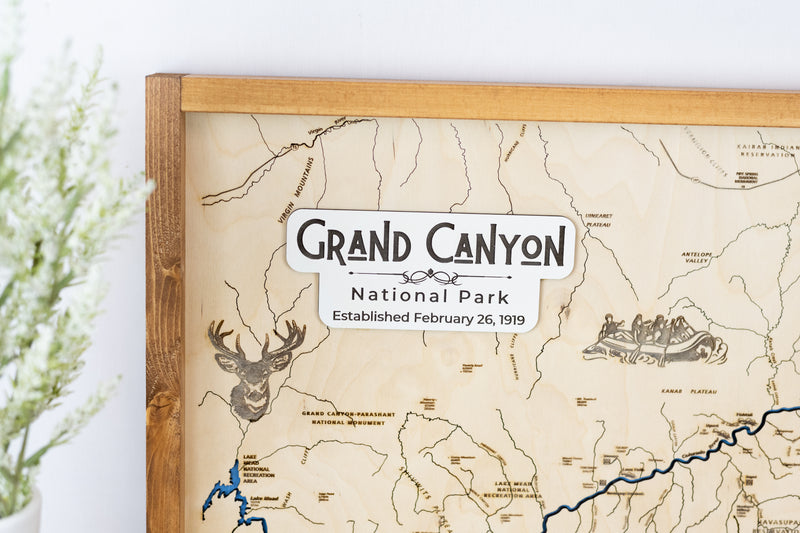 Virgin River
VIRGIN MOUNTAINS
HURRICANE CLIFFS
VERMILION CLIFFS
KAIBAB INDIAN
RESERVATION
PIPE SPRING
NATIONAL
MONUMENT
UINKARET
PLATEAU
ANTELOPE
VALLEY
GRAND CANYON
National Park
Established February 26, 1919
HURRICANE CLIFFS
KANAB PLATEAU
GRAND CANYON-PARASHANT
NATIONAL MONUMENT
LAKE
MEAD
NATIONAL
RECREATION
AREA
Lake Mead
CLIFFS
LAKE MEAD
NATIONAL
RECREATION AREA
HAVASUPAI
RESERVATION